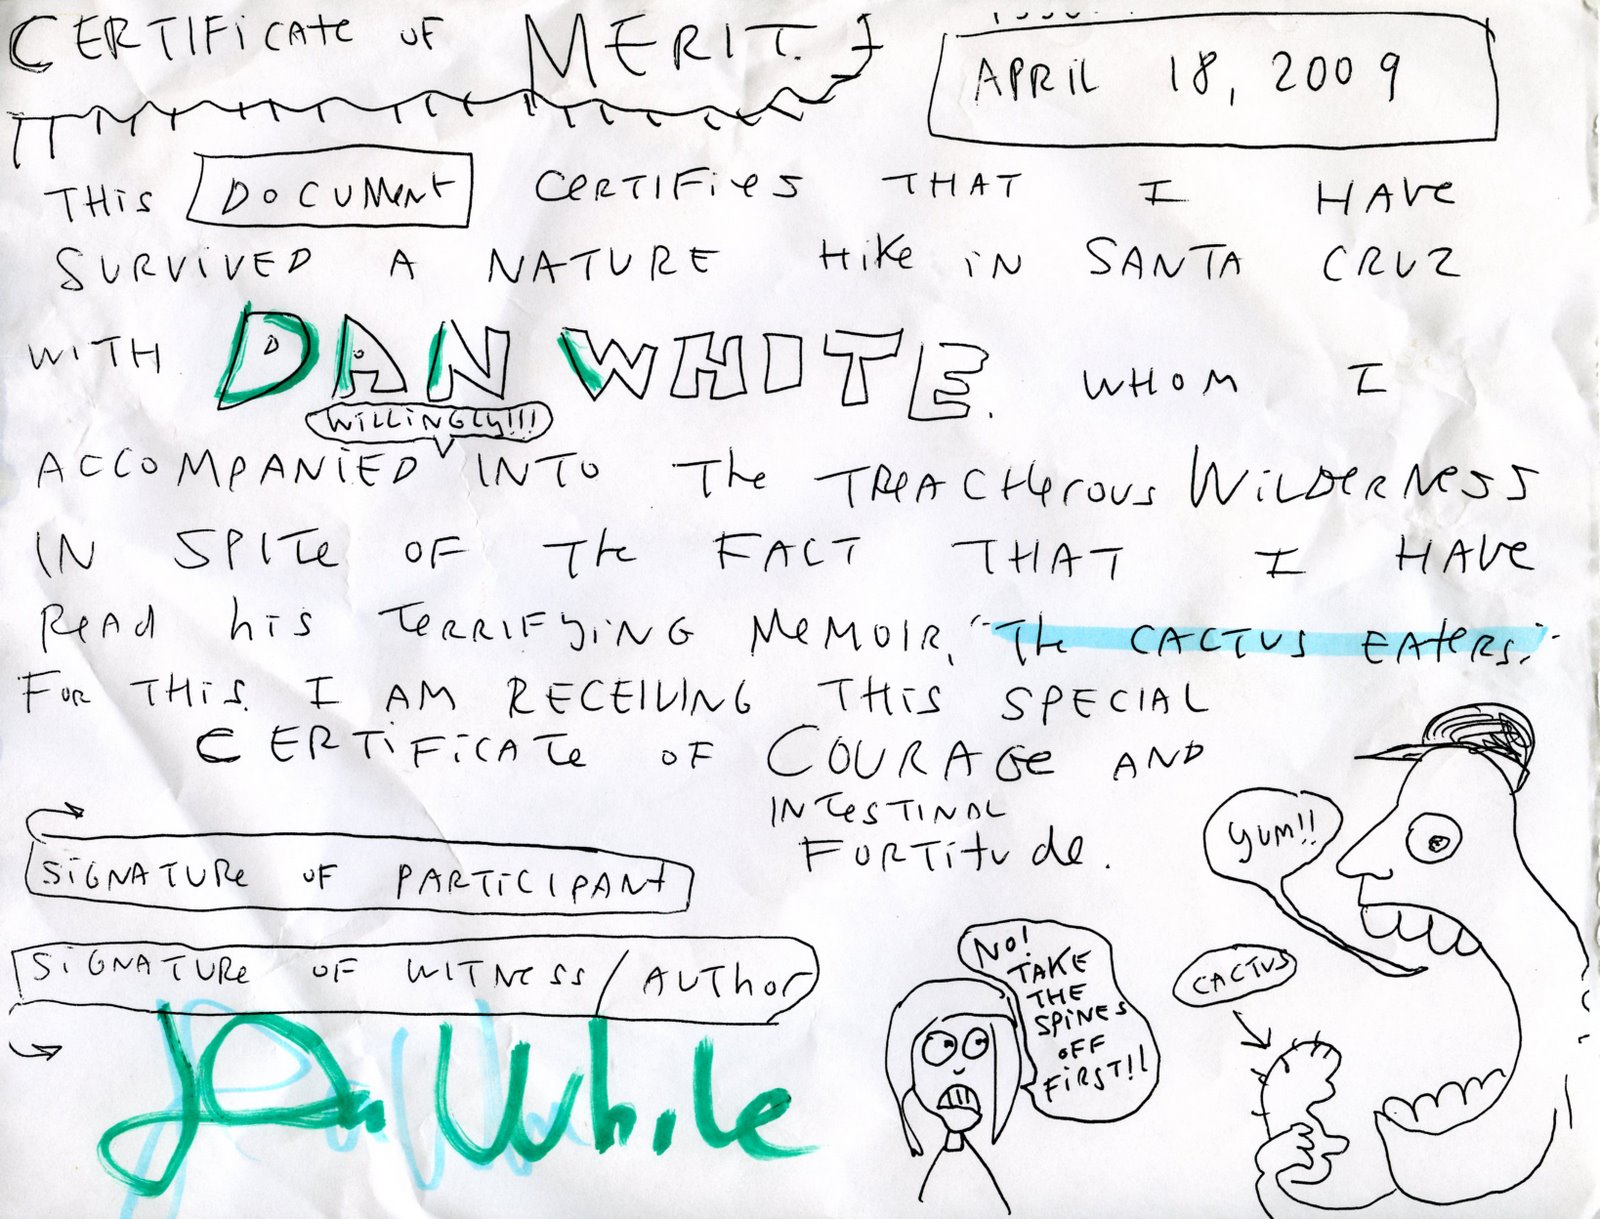 CERTIFICATE OF MERIT.
APRIL 18, 2009
THIS DOCUMENT CERTIFIES THAT I HAVE
SURVIVED A NATURE HIKE IN SANTA CRUZ
WITH DAN WHITE. WHOM I
WILLINGLY!!!
ACCOMPANIED INTO THE TREACHEROUS WILDERNESS
IN SPITE OF THE FACT THAT I HAVE
READ his TERRIFYING MEMOIR, "THE CACTUS EATERS."
FOR THIS. I AM RECEIVING THIS SPECIAL
CERTIFICATE OF COURAGE AND
INTESTINAL
FORTITUDE.
SIGNATURE OF PARTICIPANT
SIGNATURE OF WITNESS / AUTHOR
Dan White
YUM!!
CACTUS
NO!
TAKE
THE
SPINES
OFF
FIRST!!